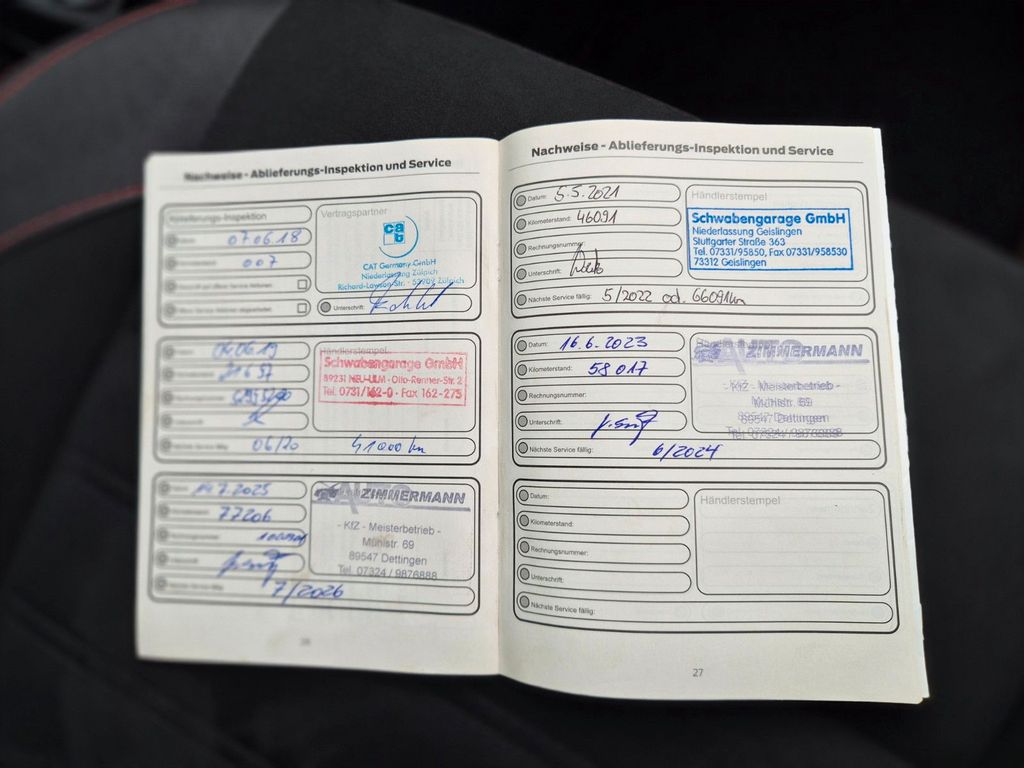 Nachweise - Ablieferungs-Inspektion und Service
Ablieferungs-Inspektion
07 06 18
007
Vertragspartner
cat
CAT Germany GmbH
Niederlassung Zülpich
Richard-Lawson-Str. - 53909 Zülpich
Unterschrift:
06/20 41000 km
Händlerstempel
Schwabengarage GmbH
89231 NEU-ULM · Otto-Renner-Str. 2
Tel. 0731/162-0 · Fax 162-275
7.2025
77206
7/2026
AUTO ZIMMERMANN
- KfZ - Meisterbetrieb -
Mühlstr. 69
89547 Dettingen
Tel. 07324 / 9876888
Nachweise - Ablieferungs-Inspektion und Service
Datum: 5.5.2021
Kilometerstand: 46091
Rechnungsnummer:
Unterschrift:
Nächste Service fällig: 5/2022 od. 66091km
Händlerstempel
Schwabengarage GmbH
Niederlassung Geislingen
Stuttgarter Straße 363
Tel. 07331/95850, Fax 07331/958530
73312 Geislingen
Datum: 16.6.2023
Kilometerstand: 58017
Rechnungsnummer:
Unterschrift:
Nächste Service fällig: 6/2024
AUTO ZIMMERMANN
- KfZ - Meisterbetrieb -
Mühlstr. 69
89547 Dettingen
Tel. 07324 / 9876888
Datum:
Kilometerstand:
Rechnungsnummer:
Unterschrift:
Nächste Service fällig:
Händlerstempel
27